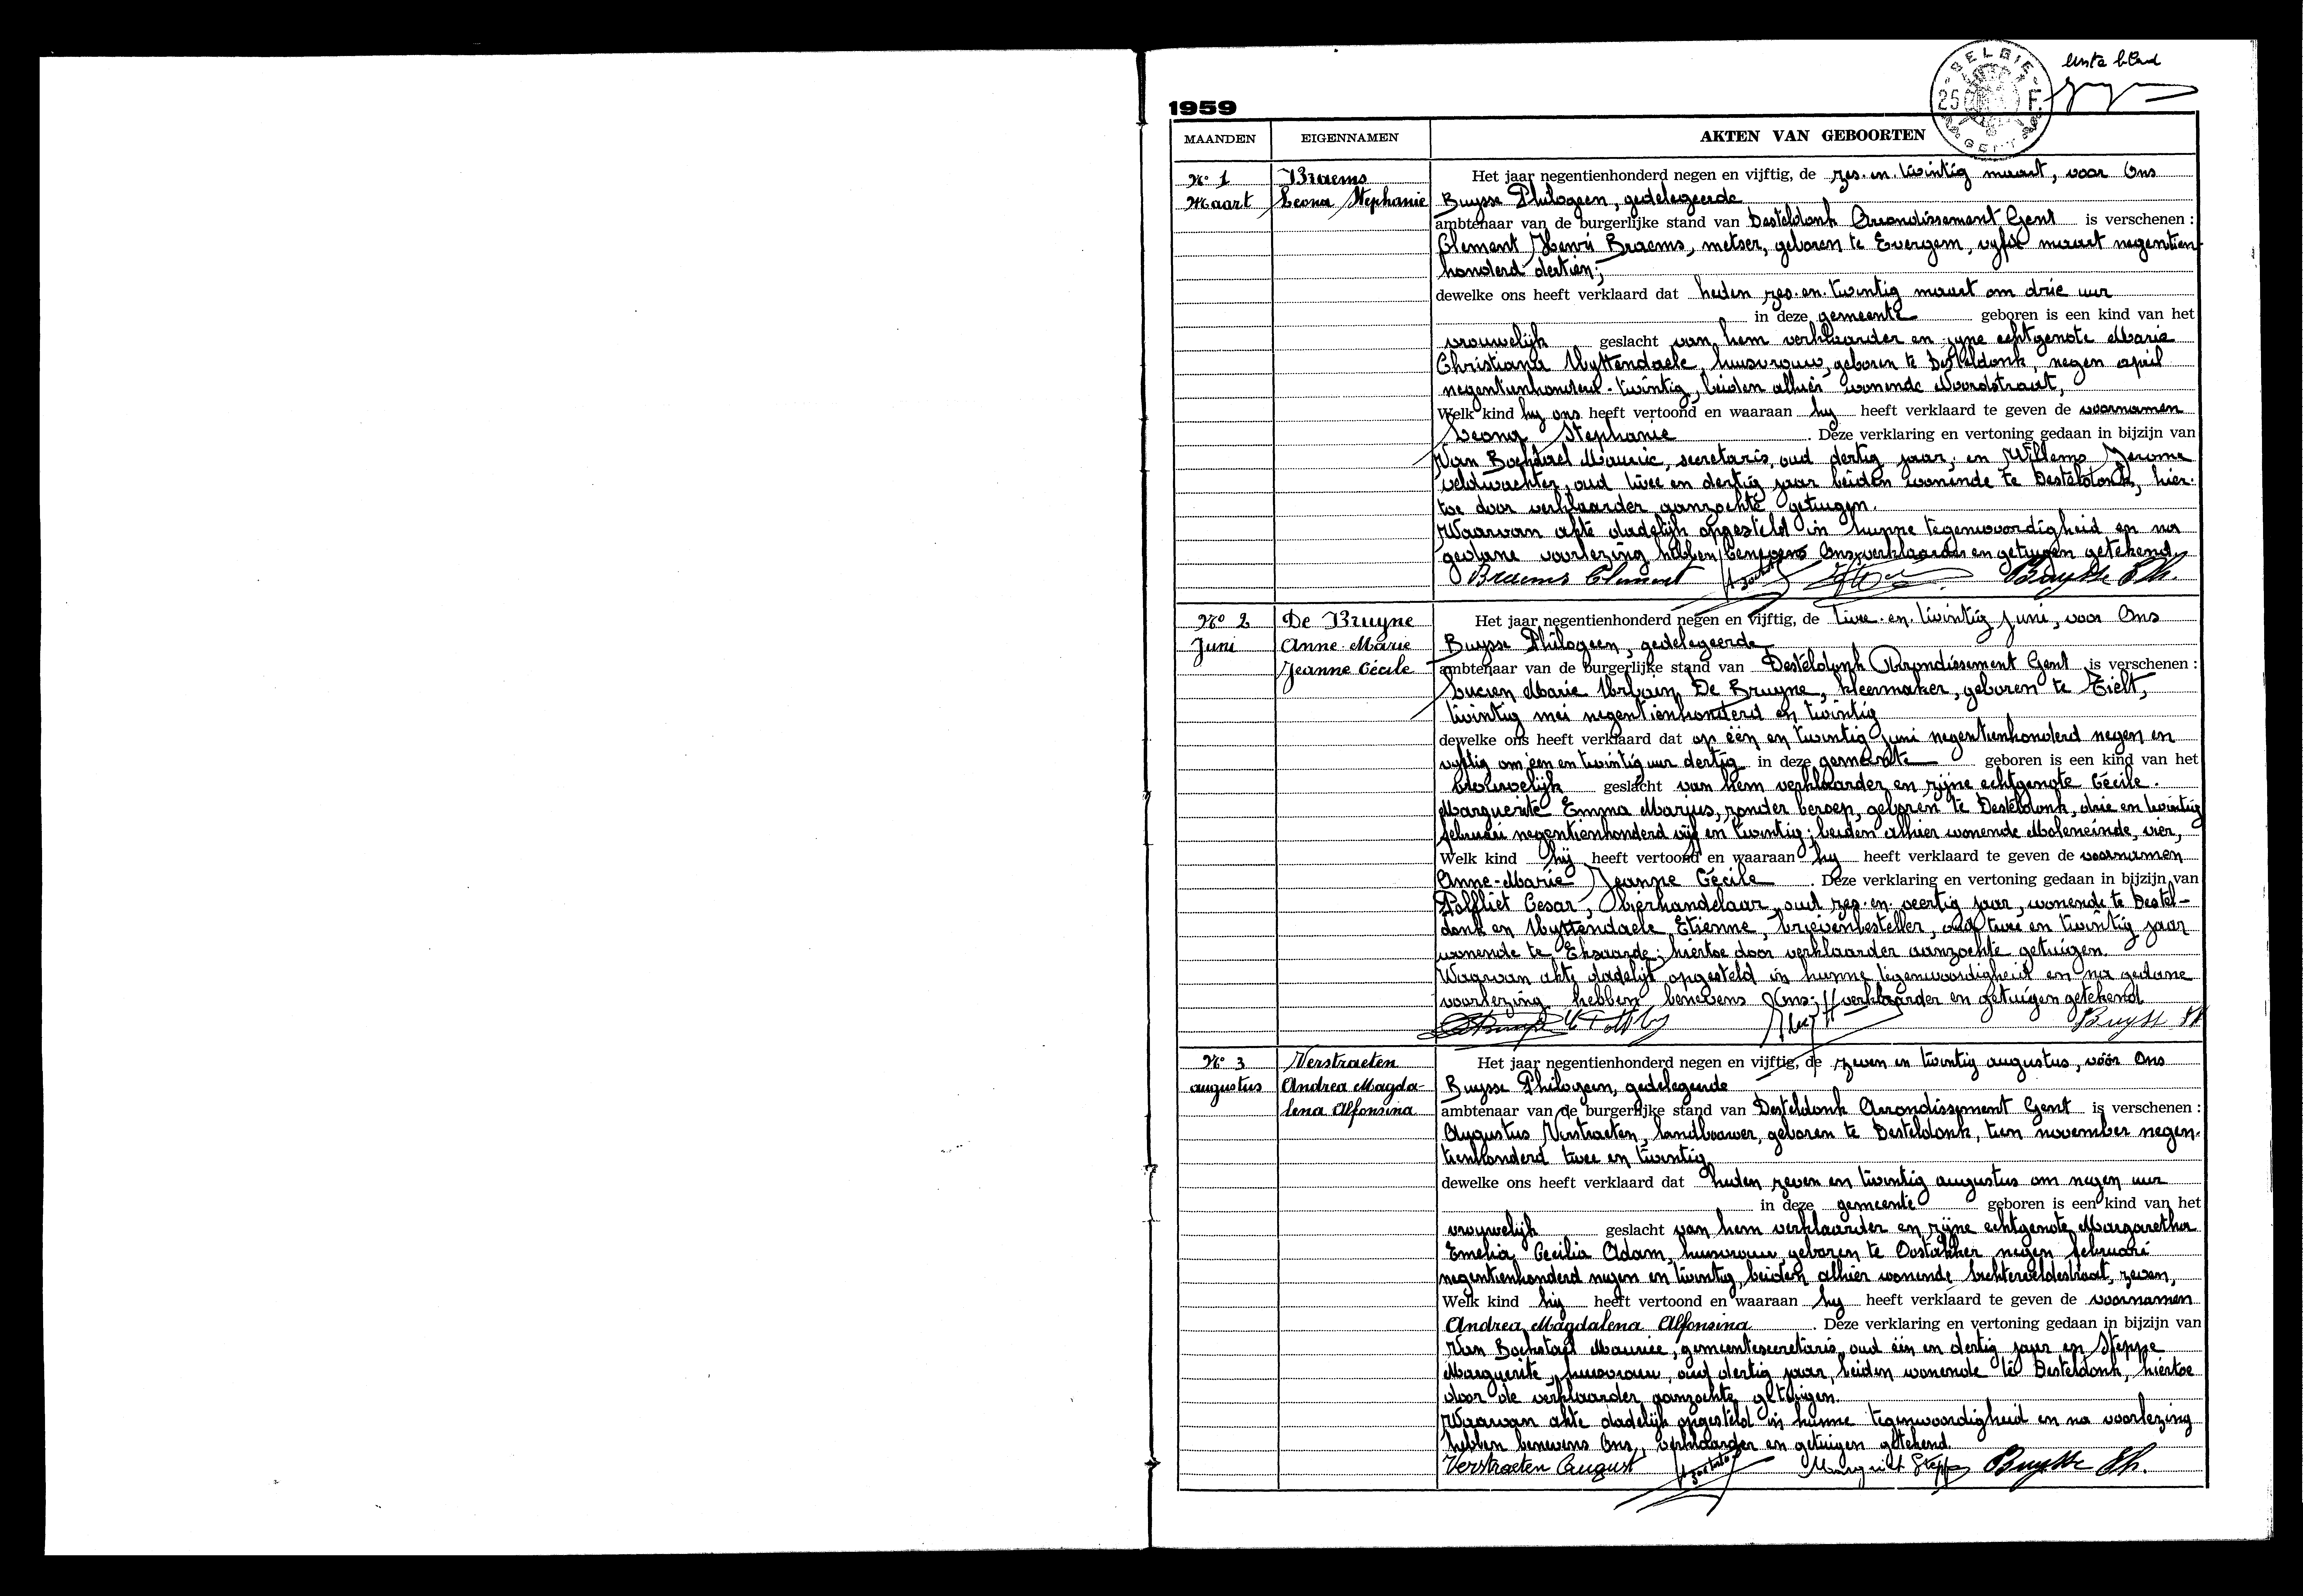 eerste blad
BELGIE 25 F. GENT
1959
MAANDEN EIGENNAMEN AKTEN VAN GEBOORTEN
No 1 Braems Het jaar negentienhonderd negen en vijftig, de zes-en-twintig maart, voor Ons
Maart Leona Stephanie Buysse Philogeen, gedelegeerde
ambtenaar van de burgerlijke stand van Desteldonk Arrondissement Gent is verschenen :
Clement Henri Braems, metser, geboren te Evergem, vyf maart negentien-
honderd dertien;
dewelke ons heeft verklaard dat heden zes-en-twintig maart om drie uur
in deze gemeente geboren is een kind van het
vrouwelijk geslacht van hem verklaarder en zyne echtgenote Marie
Christiana Uyttendaele, huisvrouw, geboren te Desteldonk, negen april
negentienhonderd-twintig, beiden alhier wonende Noordstraat,
Welk kind hy ons heeft vertoond en waaraan hy heeft verklaard te geven de voornamen
Leona Stephanie . Deze verklaring en vertoning gedaan in bijzijn van
Van Bockstael Maurice, secretaris, oud dertig jaar, en Willems Jerome
veldwachter, oud twee en dertig jaar beiden wonende te Desteldonk, hier-
toe door verklaarder aanzochte getuigen.
Waarvan akte dadelijk opgesteld in hunne tegenwoordigheid en na
gedane voorlezing hebben benevens Ons, verklaarder en getuigen getekend
Braems Clement Buysse Ph.
No 2 De Bruyne Het jaar negentienhonderd negen en vijftig, de twee-en-twintig juni, voor Ons
Juni Anne-Marie Buysse Philogeen, gedelegeerde
Jeanne Cécile ambtenaar van de burgerlijke stand van Desteldonk Arrondissement Gent is verschenen :
Lucien Marie Urbain De Bruyne, kleermaker, geboren te Tielt,
twintig mei negentienhonderd en twintig
dewelke ons heeft verklaard dat op één en twintig juni negentienhonderd negen en
vyftig om één en twintig uur dertig in deze gemeente geboren is een kind van het
vrouwelijk geslacht van hem verklaarder en zijne echtgenote Cécile
Marguerite Emma Marjus, zonder beroep, geboren te Desteldonk, drie en twintig
februari negentienhonderd vijf en twintig; beiden alhier wonende Moleneinde, vier,
Welk kind hij heeft vertoond en waaraan hy heeft verklaard te geven de voornamen
Anne-Marie Jeanne Cécile . Deze verklaring en vertoning gedaan in bijzijn van
Polfliet Cesar, bierhandelaar, oud zes-en-veertig jaar, wonende te Destel-
donk en Uyttendaele Etienne, brievenbesteller, oud twee en twintig jaar
wonende te Eksaarde; hiertoe door verklaarder aanzochte getuigen.
Waarvan akte dadelijk opgesteld in hunne tegenwoordigheid en na gedane
voorlezing hebben benevens Ons, verklaarder en getuigen getekend
Buysse Ph
No 3 Verstraeten Het jaar negentienhonderd negen en vijftig, de zeven en twintig augustus, vóór Ons
augustus Andrea Magda- Buysse Philogeen, gedelegeerde
lena Alfonsina ambtenaar van de burgerlijke stand van Desteldonk Arrondissement Gent is verschenen :
Augustus Verstraeten, landbouwer, geboren te Desteldonk, tien november negen-
tienhonderd twee en twintig
dewelke ons heeft verklaard dat heden zeven en twintig augustus om negen uur
in deze gemeente geboren is een kind van het
vrouwelijk geslacht van hem verklaarder en zijne echtgenote Margaretha
Emelia Cecilia Adam, huisvrouw geboren te Oostakker negen februari
negentienhonderd negen en twintig, beiden alhier wonende zeven,
Welk kind hij heeft vertoond en waaraan hy heeft verklaard te geven de voornamen
Andrea Magdalena Alfonsina . Deze verklaring en vertoning gedaan in bijzijn van
Van Bockstael Maurice, gemeentesecretaris, oud één en dertig jaar en Steppe
Marguerite, huisvrouw, oud dertig jaar, beiden wonende te Desteldonk, hiertoe
door de verklaarder aanzochte getuigen.
Waarvan akte dadelijk opgesteld in hunne tegenwoordigheid en na voorlezing
hebben benevens Ons, verklaarder en getuigen getekend.
Verstraeten August Marguerite Steppe Buysse Ph.